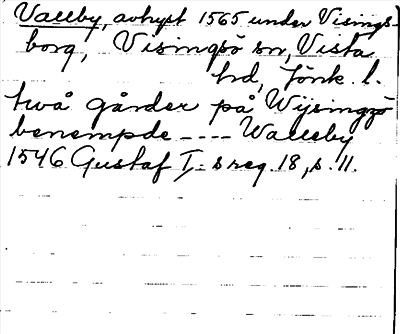 Valleby, avhyst 1565 under Visings-
borg, Visingsö sn, Vista
hd, Jönk. l.
twå gårder på Wijsingzö
benempde ---- Walleby
1546 Gustaf I:s reg. 18, s. 11.